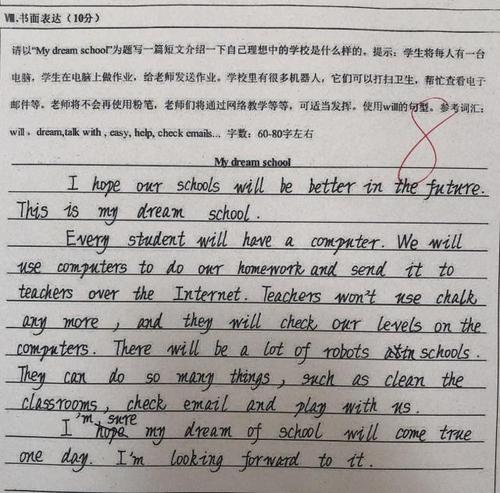 Ⅷ.书面表达（10分）
请以"My dream school"为题写一篇短文介绍一下自己理想中的学校是什么样的。提示：学生将每人有一台
电脑，学生在电脑上做作业，给老师发送作业。学校里有很多机器人，它们可以打扫卫生，帮忙查看电子
邮件等。老师将不会再使用粉笔，老师们将通过网络教学等等，可适当发挥。使用will的句型。参考词汇：
will，dream,talk with , easy, help, check emails... 字数：60-80字左右
8
My dream school
I hope our schools will be better in the future.
This is my dream school.
Every student will have a computer. We will
use computers to do our homework and send it to
teachers over the Internet. Teachers won't use chalk
any more , and they will check our levels on the
computers. There will be a lot of robots in schools.
They can do so many things , such as clean the
classrooms, check email and play with us.
I'm sure my dream of school will come true
one day. I'm looking forward to it.